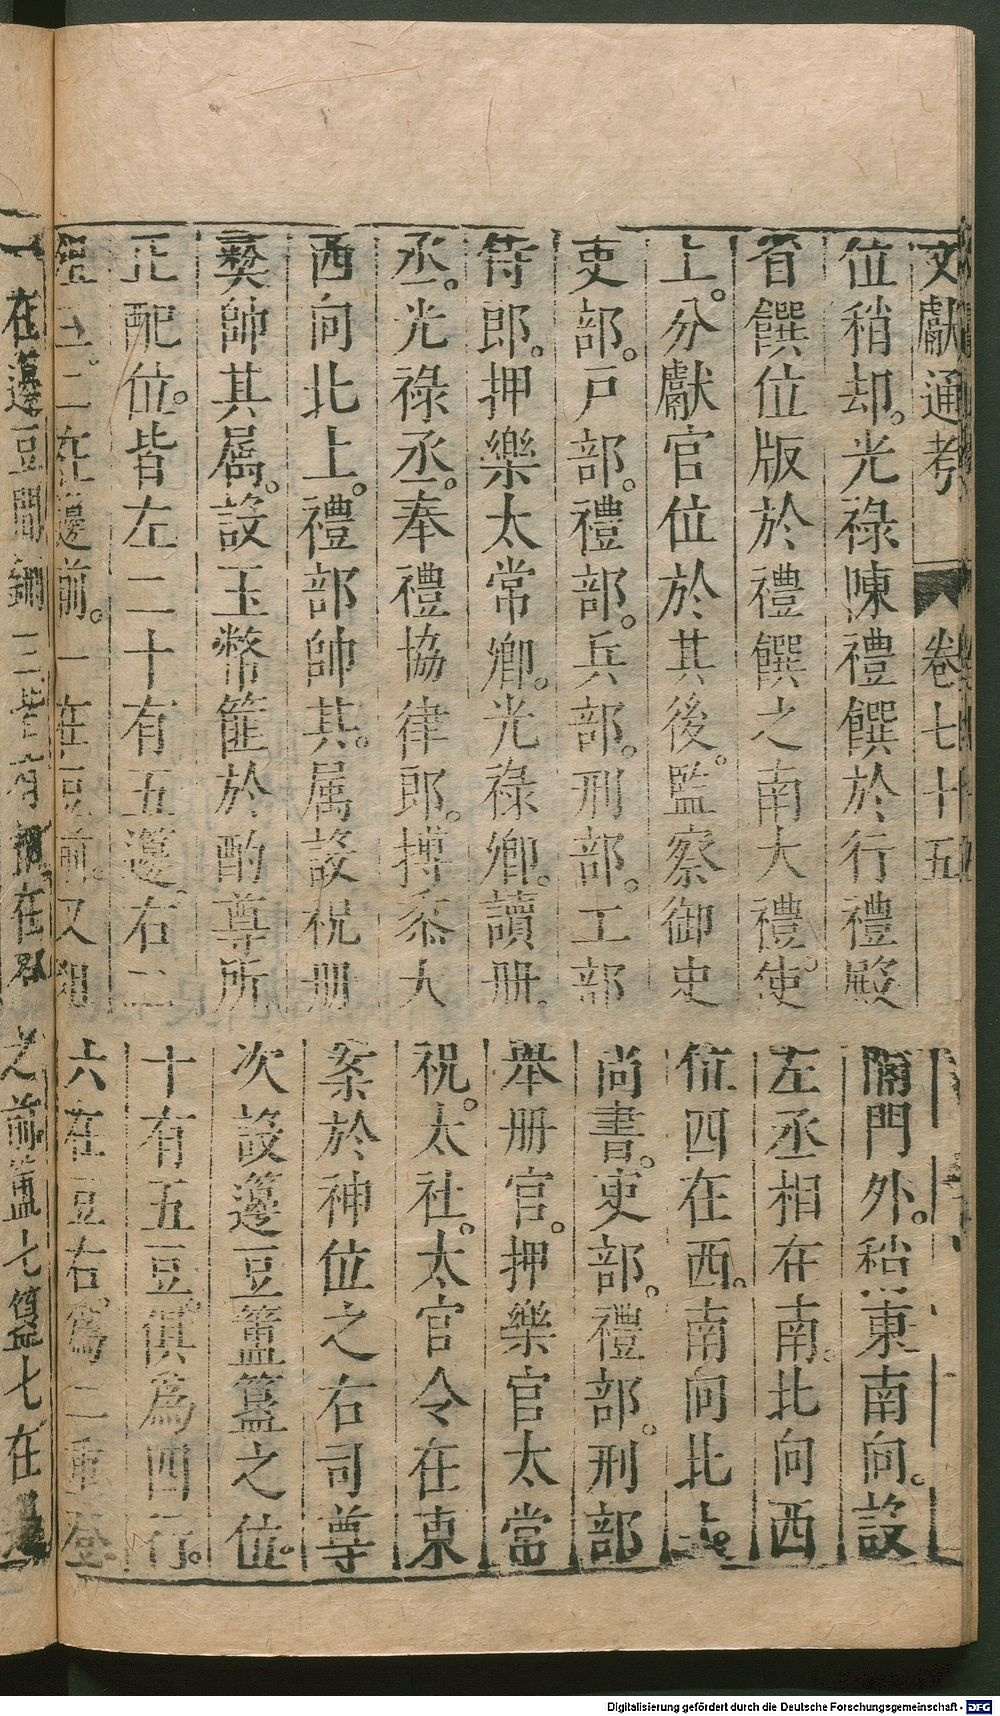 文獻通考 卷七十五
位稍却。光祿陳禮饌於行禮殿隔門外。稍東南向。設
省饌位版於禮饌之南大禮使左丞相在南。北向西
上。分獻官位於其後。監察御史位四在西。南向北上。
吏部。戶部。禮部。兵部。刑部。工部尚書。吏部。禮部。刑部
侍郎。押樂太常卿。光祿卿。讀冊。舉冊官。押樂官太常
丞。光祿丞。奉禮協律郎。搏黍大祝。太社。太官令在東
西向北上。禮部帥其。属設祝册案於神位之右司尊
彜帥其属。設玉幣篚於酌尊所次設籩豆簠簋之位。
正配位。皆左二十有五籩。右二十有五豆。俱爲四行。
俎三。二在籩前。一在豆前。又俎六在豆右。爲二重登。
一在籩豆間鉶三皆有柶在
之前簠七簋七在
Digitalisierung gefördert durch die Deutsche Forschungsgemeinschaft - DFG